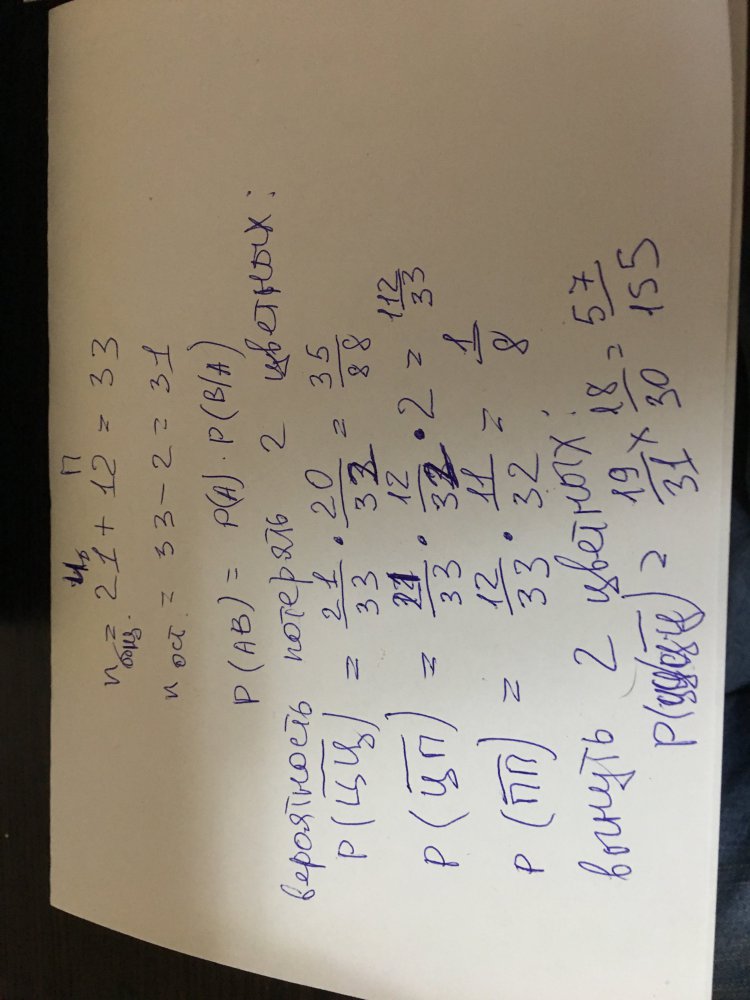 n общ. = 21 + 12 = 33
n ост. = 33 - 2 = 31
P(AB) = P(A) · P(B/A)
вероятность потерять 2 цветных:
P(ЦЦ) = 21/33 · 20/32 = 35/88
P(ЦП) = 21/33 · 12/32 · 2 = 112/33
P(ПП) = 12/33 · 11/32 = 1/8
вынуть 2 цветных:
P( ) = 19/31 × 18/30 = 57/155